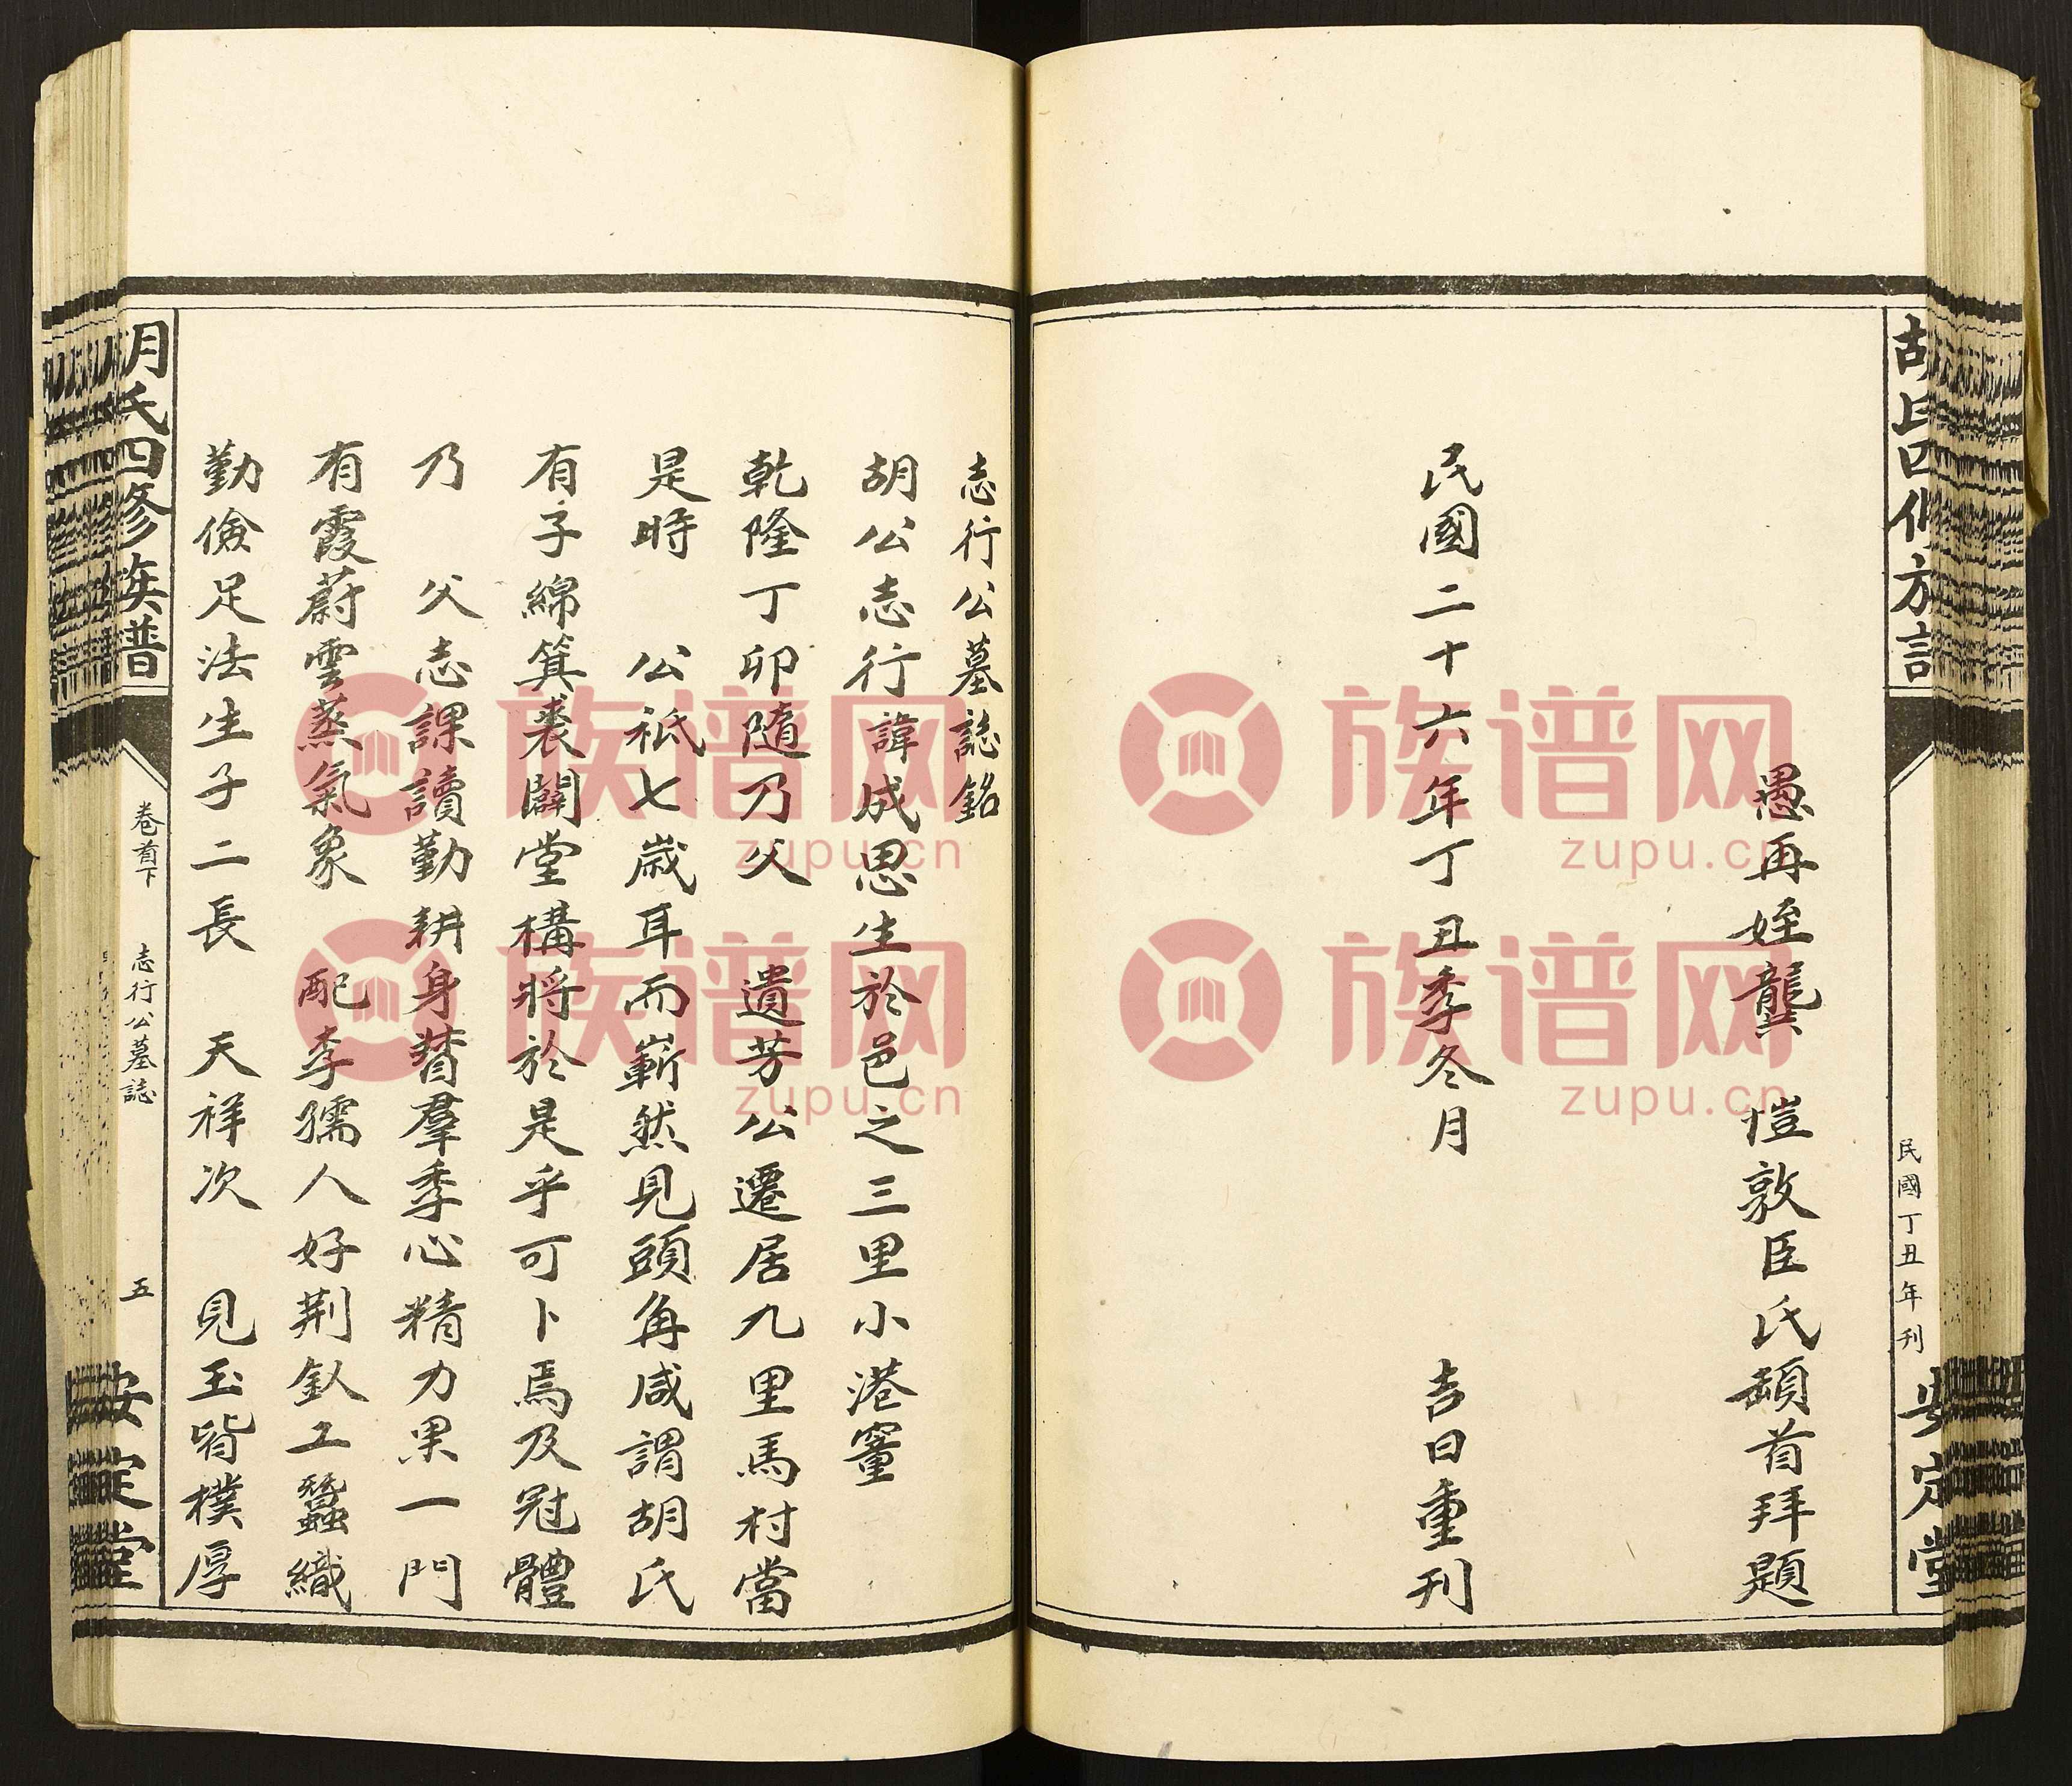 胡氏四修族譜
民國丁丑年刊
安定堂
愚再姪龔 愷敦臣氏頓首拜題
民國二十六年丁丑季冬月 吉日重刊
志行公墓誌銘
胡公志行諱成思生於邑之三里小港窰
乾隆丁卯隨乃父 遺芳公遷居九里馬村當
是時 公祇七歲耳而嶄然見頭角咸謂胡氏
有子綿箕裘闢堂構將於是乎可卜焉及冠體
乃 父志課讀勤耕身替羣季心精力果一門
有霞蔚雲蒸氣象 配李孺人好荆釵工蠶織
勤儉足法生子二長 天祥次 見玉皆樸厚
胡氏四修族譜
卷首下
志行公墓誌
五
安定堂
族谱网
zupu.cn
族谱网
zupu.cn
族谱网
zupu.cn
族谱网
zupu.cn